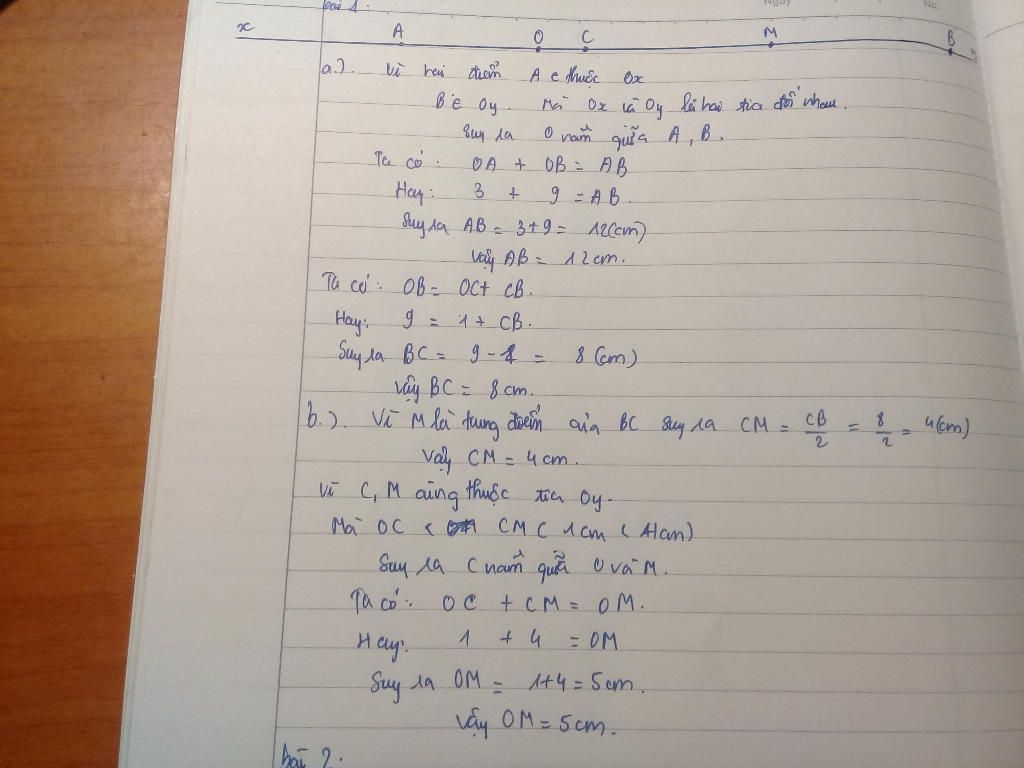 Bài 1:
Ngày No.
x A O C M B y
a.). Vì hai điểm A e thuộc Ox
B ∈ Oy. Mà Ox và Oy là hai tia đối nhau.
Suy ra O nằm giữa A, B.
Ta có: OA + OB = AB
Hay: 3 + 9 = AB.
Suy ra AB = 3+9 = 12(cm)
Vậy AB = 12cm.
Ta có: OB = OC + CB.
Hay: 9 = 1 + CB.
Suy ra BC = 9-1 = 8 (cm)
Vậy BC = 8cm.
b.). Vì M là trung điểm của BC suy ra CM = CB/2 = 8/2 = 4(cm)
Vậy CM = 4cm.
Vì C, M cùng thuộc tia Oy.
Mà OC < CM ( 1cm <
Suy ra C nằm giữa O và M.
Ta có: OC + CM = OM.
Hay: 1 + 4 = OM
Suy ra OM = 1+4 = 5cm.
Vậy OM = 5cm.
Bài 2: